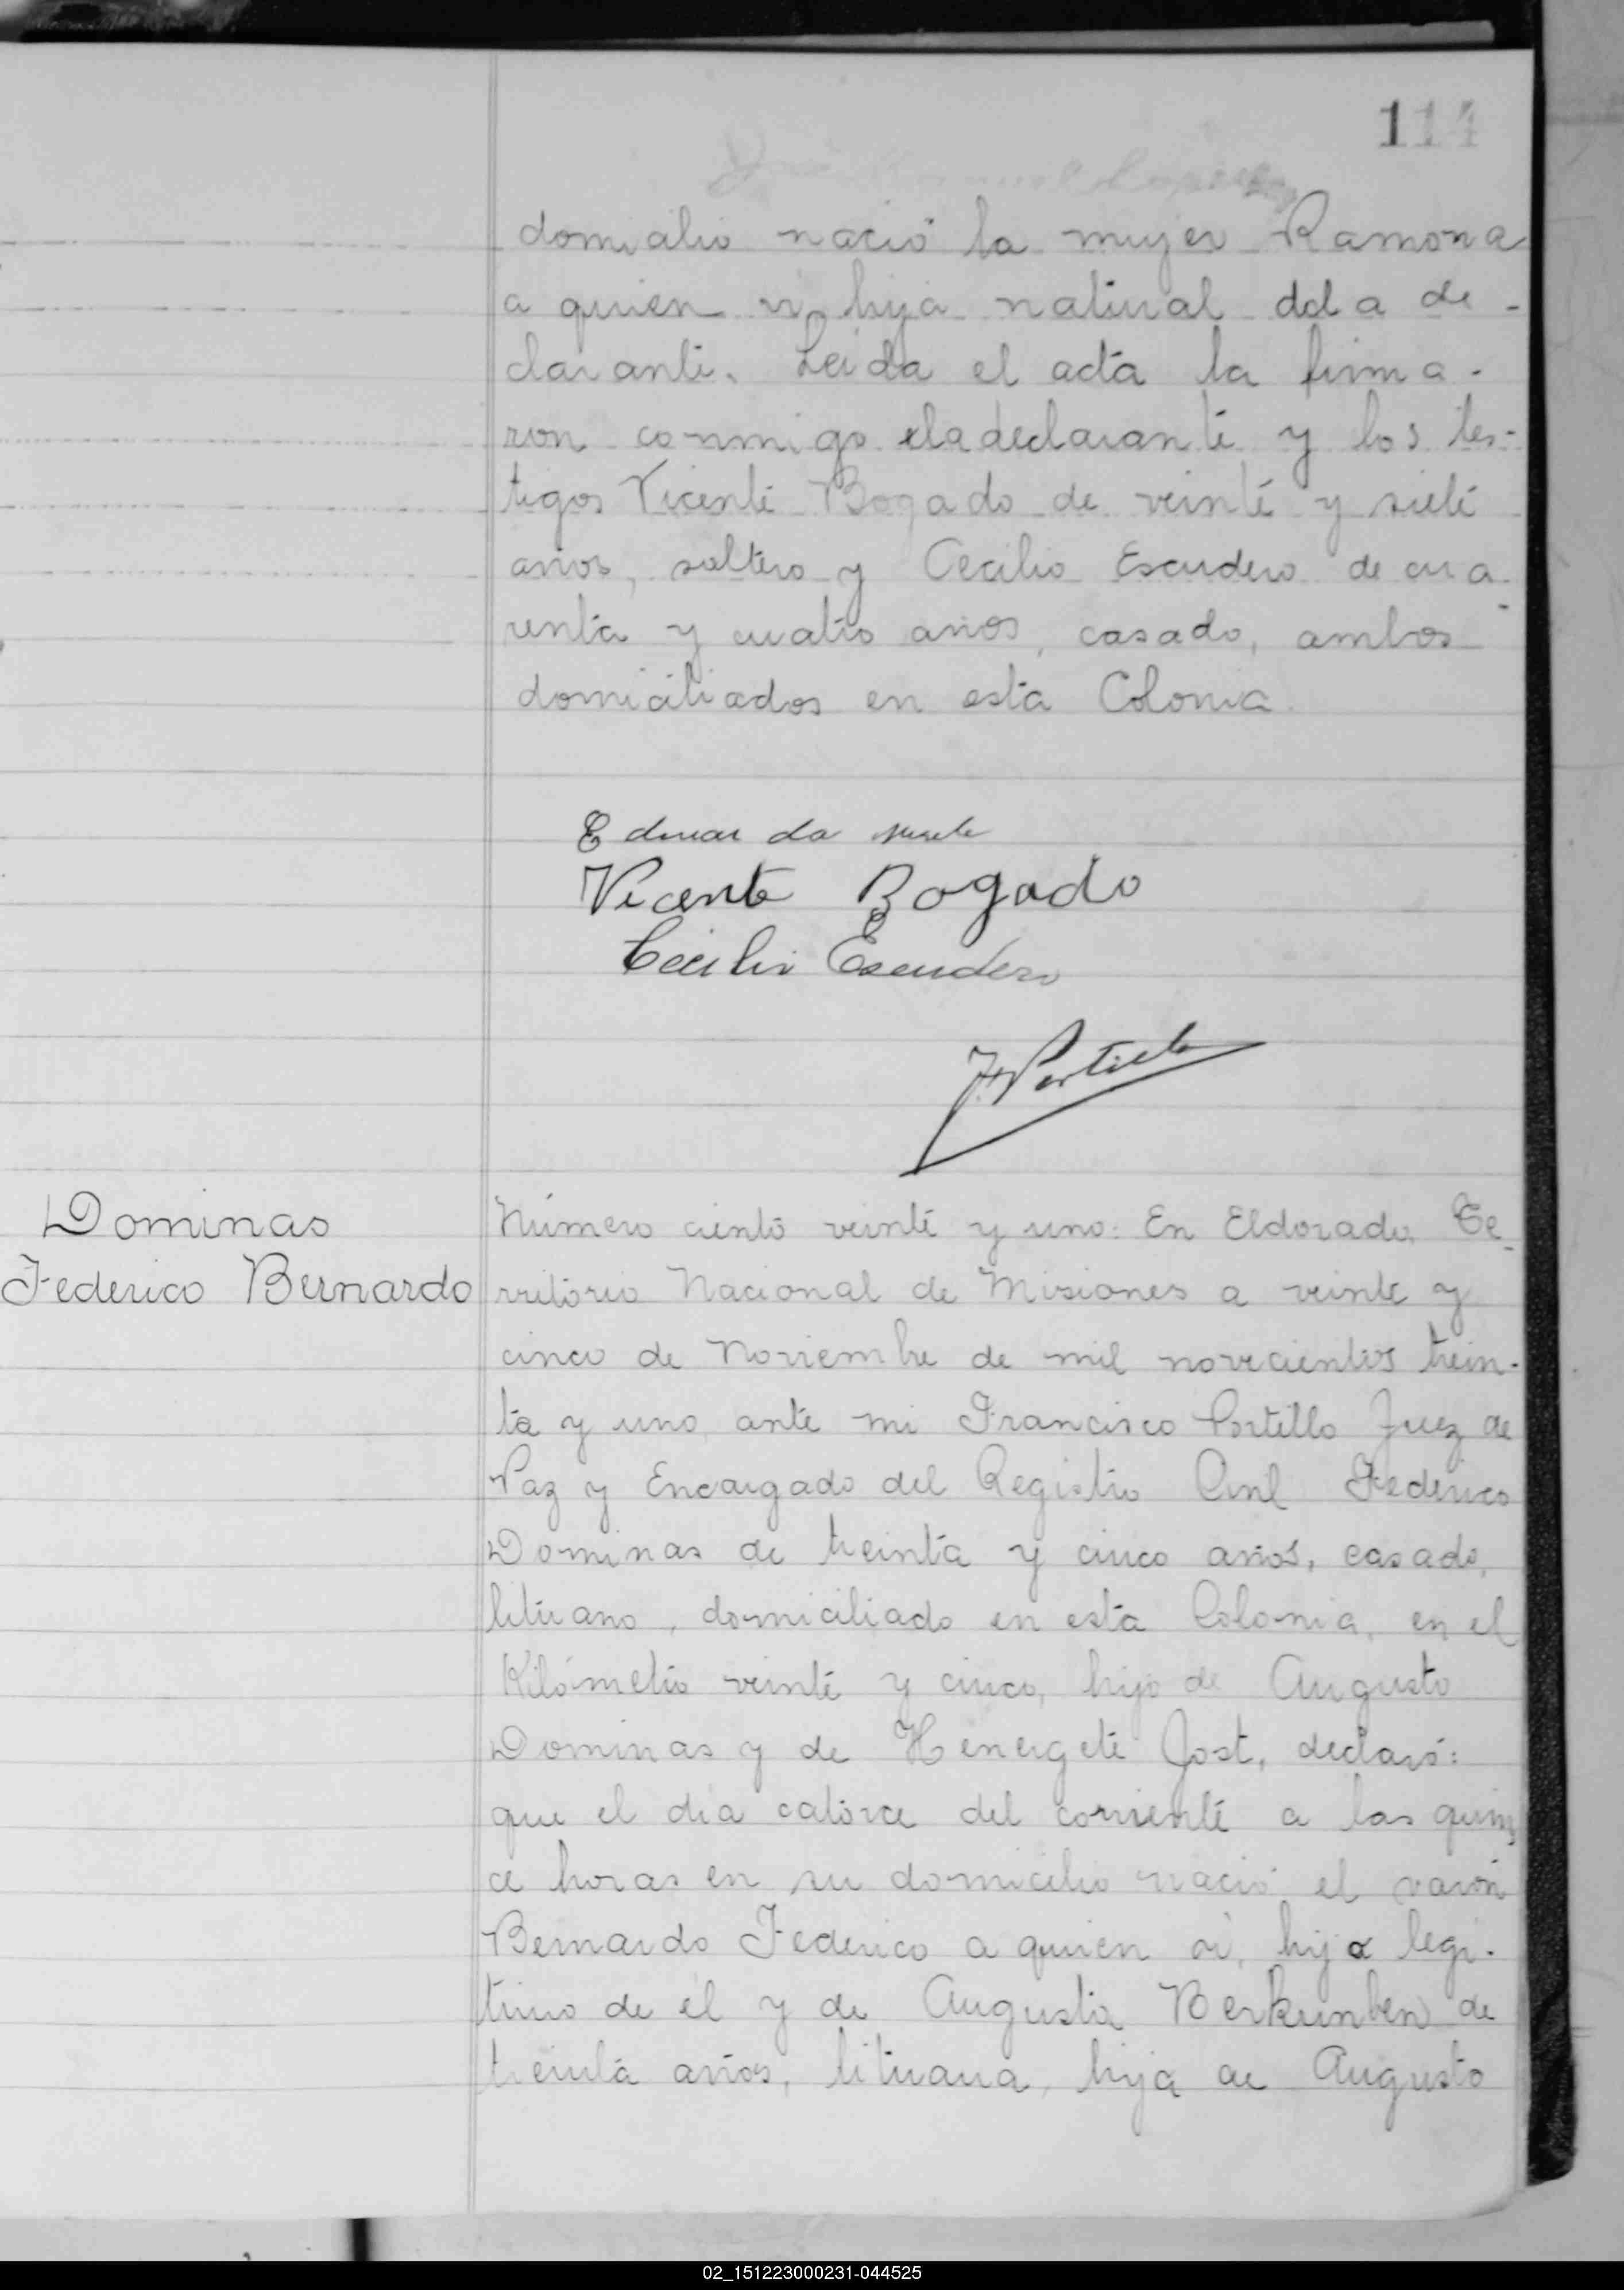 114
domicilio nació la mujer Ramona
a quien vi, hija natural dela de-
clarante. Leida el acta la firma-
ron conmigo ela declarante y los tes-
tigos Vicente Bogado de veinte y siete
años, soltero y Cecilio Escudero de cua-
renta y cuatro años, casado, ambos
domiciliados en esta Colonia.
Vicente Bogado
Cecilio Escudero
F. Portillo
Dominas
Federico Bernardo
Número ciento veinte y uno: En Eldorado, Te-
rritorio Nacional de Misiones a veinte y
cinco de Noviembre de mil novecientos trein-
ta y uno, ante mi Francisco Portillo Juez de
Paz y Encargado del Registro Civil Federico
Dominas de treinta y cinco años, casado,
lituano, domiciliado en esta Colonia, en el
Kilómetro veinte y cinco, hijo de Augusto
Dominas y de Henergete Jost, declaró:
que el día catorce del corriente a las quin-
ce horas en su domicilio nació el varón
Bernardo Federico a quien vi, hijo legi-
timo de él y de Augusta Berkunben de
treinta años, lituana, hija de Augusto
02_151223000231-044525